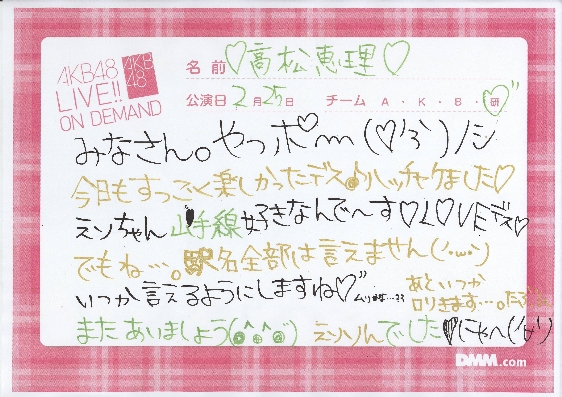 AKB48
LIVE!!
ON DEMAND
AKB
48
名前 ♡高松恵理♡
公演日 2月25日 チーム A・K・B・研
みなさん。やっポm(♡'3`)ノシ
今日もすっごく楽しかったデス。ハッチャケました♡
えンちゃん山手線好きなんで〜す♡LOVEデス♡
でもね…。駅名全部は言えません(´・ω・`)
いつか言えるようにしますね♡
あといつか
またあいましょう(^ω^) えりりんでした♡にゃへ
DMM.com